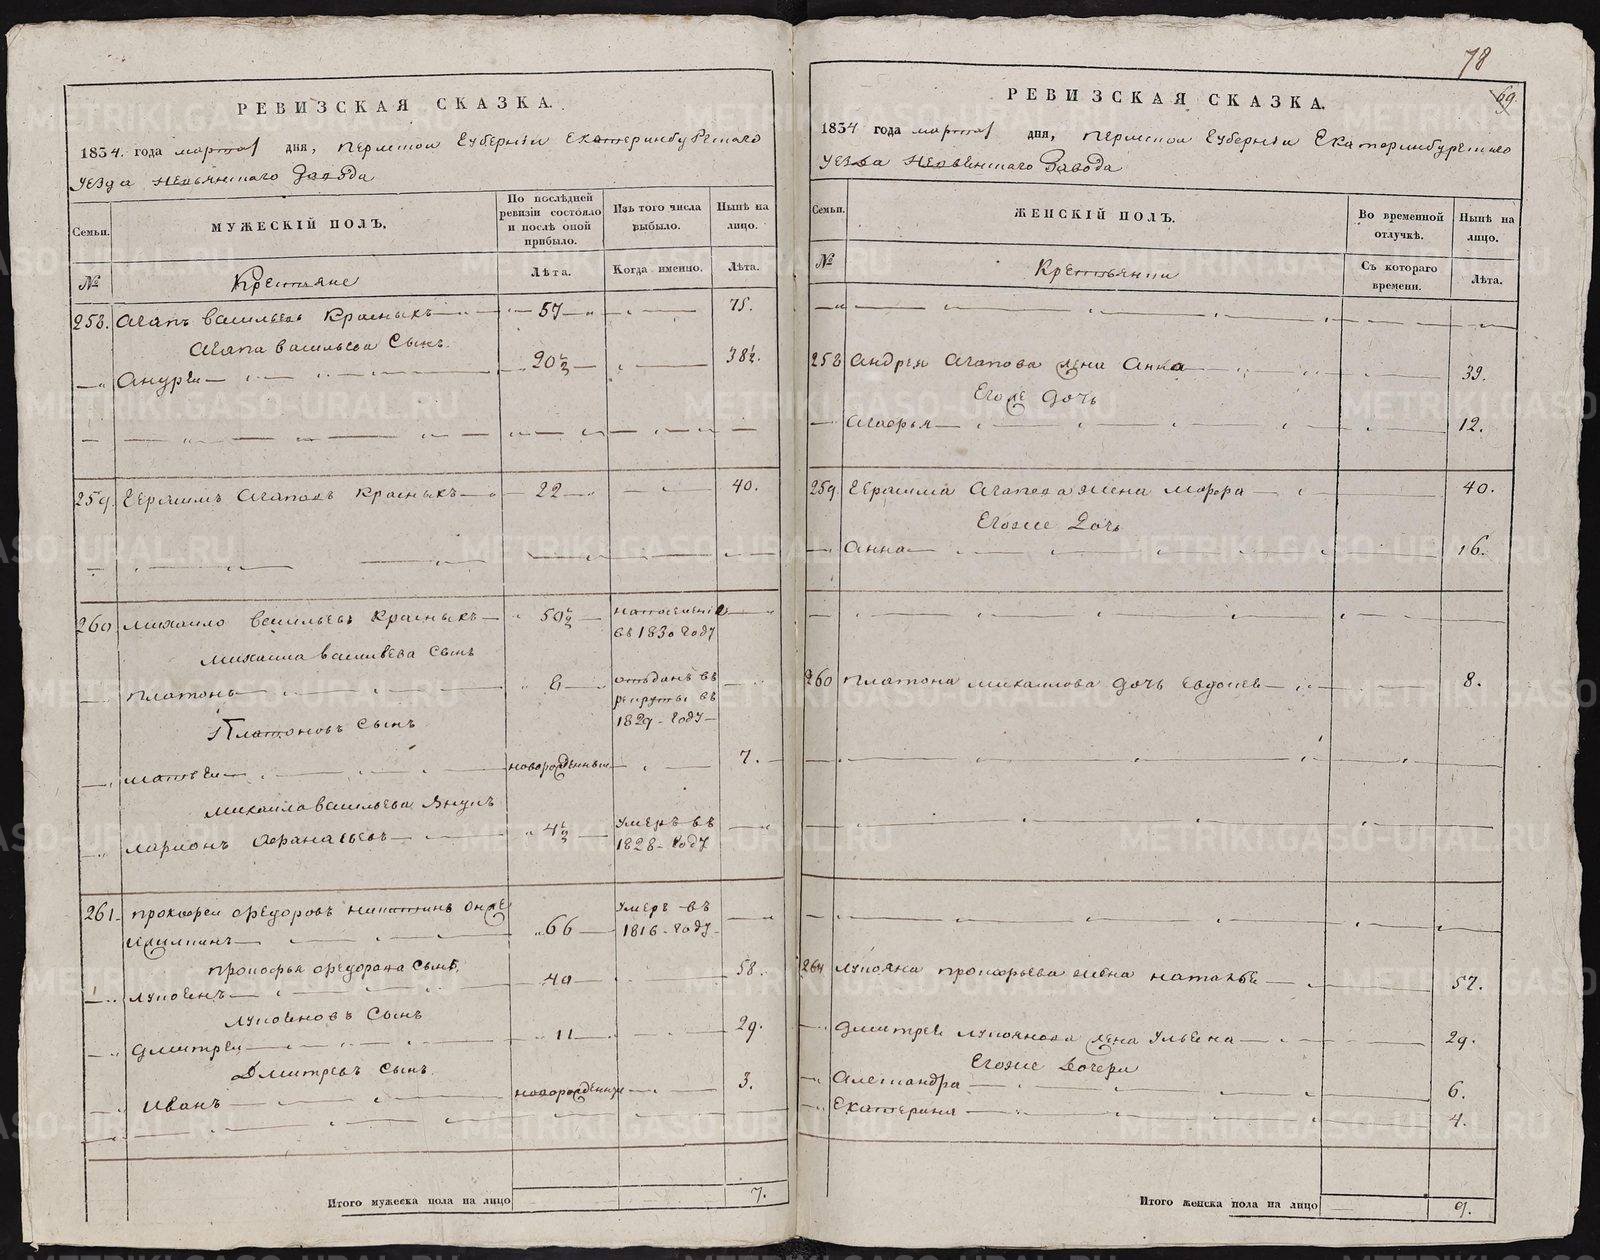 78
РЕВИЗСКАЯ СКАЗКА.
1834. года марта 1 дня, Пермской Губернии Екатеринбургскаго
уезда Невьянскаго Завода
Семьи.
МУЖЕСКІЙ ПОЛЪ.
По послѣдней ревизіи состояло и послѣ оной прибыло.
Изъ того числа выбыло.
Нынѣ на лицо.
№
Крестьяне
Лѣта.
Когда именно.
Лѣта.
258. Агапъ Васильевъ Красныхъ 57 75.
Агапа Васильева Сынъ
Андрей 20½ 38½.
259. Герасимъ Агаповъ Красныхъ 22 40.
260 Михайло Васильевъ Красныхъ 50½
въ 1830 году
Михаила Васильева Сынъ
Платонъ 6 отданъ въ
рекруты въ
1829 году
Платоновъ Сынъ
Матвей новорожденный 7.
Михаила Васильева
Ларионъ Афанасьевъ 4½ умеръ въ
1828 году
261. Прокофей Федоровъ Никитинъ онже 66 умеръ въ
1816 году
Прокофья Федорова Сынъ
Лупоянъ 40 58.
Лупояновъ Сынъ
Дмитрей 11 29.
Дмитревъ Сынъ
Иванъ новорожденный 3.
Итого мужеска пола на лицо 7.
РЕВИЗСКАЯ СКАЗКА.
69.
1834 года марта 1 дня, Пермской Губернии Екатеринбургскаго
уезда Невьянскаго Завода
Семьи.
ЖЕНСКІЙ ПОЛЪ.
Во временной отлучкѣ.
Нынѣ на лицо.
№
Крестьянки
Съ котораго времени.
Лѣта.
258 Андрея Агапова жена Анна 39.
Егоже дочь
Агафья 12.
259. Герасима Агапова жена Марфа 40.
Егоже Дочь
Анна 16.
260 Платона Михайлова дочь 8.
261 Лупояна Прокофьева жена Наталья 57.
Дмитрея Лупоянова жена Ульяна 29.
Егоже Дочери
Александра 6.
Екатерина 4.
Итого женска пола на лицо 9.
METRIKI.GASO-URAL.RU